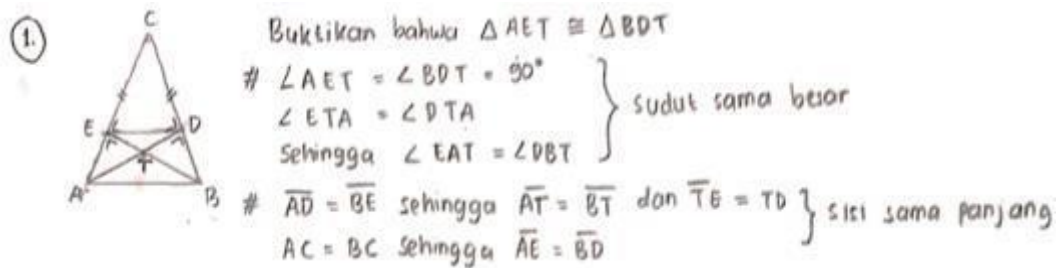 1.
C
E
D
T
A
B
Buktikan bahwa △AET ≅ △BDT
# ∠AET = ∠BDT = 90°
∠ETA = ∠DTA
Sehingga ∠EAT = ∠DBT
} sudut sama besar
# A̅D̅ = B̅E̅ sehingga A̅T̅ = B̅T̅ dan T̅E̅ = TD
AC = BC sehingga A̅E̅ = B̅D̅
} sisi sama panjang